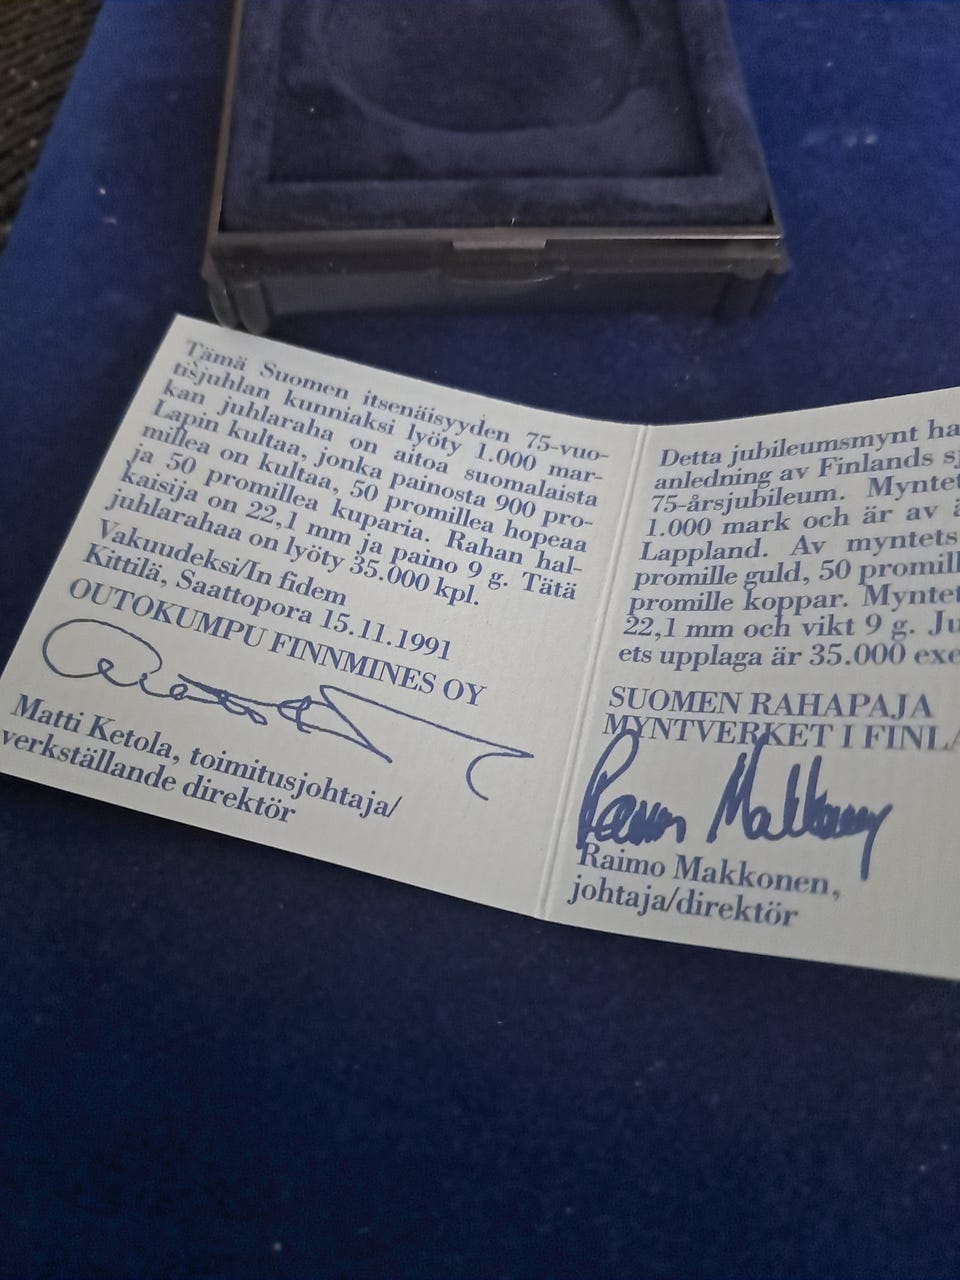 Tämä Suomen itsenäisyyden 75-vuo-
tisjuhlan kunniaksi lyöty 1.000 mar-
kan juhlaraha on aitoa suomalaista
Lapin kultaa, jonka painosta 900 pro-
millea on kultaa, 50 promillea hopeaa
ja 50 promillea kuparia. Rahan hal-
kaisija on 22,1 mm ja paino 9 g. Tätä
juhlarahaa on lyöty 35.000 kpl.
Vakuudeksi/In fidem
Kittilä, Saattopora 15.11.1991
OUTOKUMPU FINNMINES OY
Matti Ketola, toimitusjohtaja/
verkställande direktör
Detta jubileumsmynt ha
anledning av Finlands
75-årsjubileum. Myntet
1.000 mark och är av
Lappland. Av myntets
promille guld, 50 promill
promille koppar. Myntet
22,1 mm och vikt 9 g. Ju
ets upplaga är 35.000 exe
SUOMEN RAHAPAJA
MYNTVERKET I FINLA
Raimo Makkonen
Raimo Makkonen,
johtaja/direktör